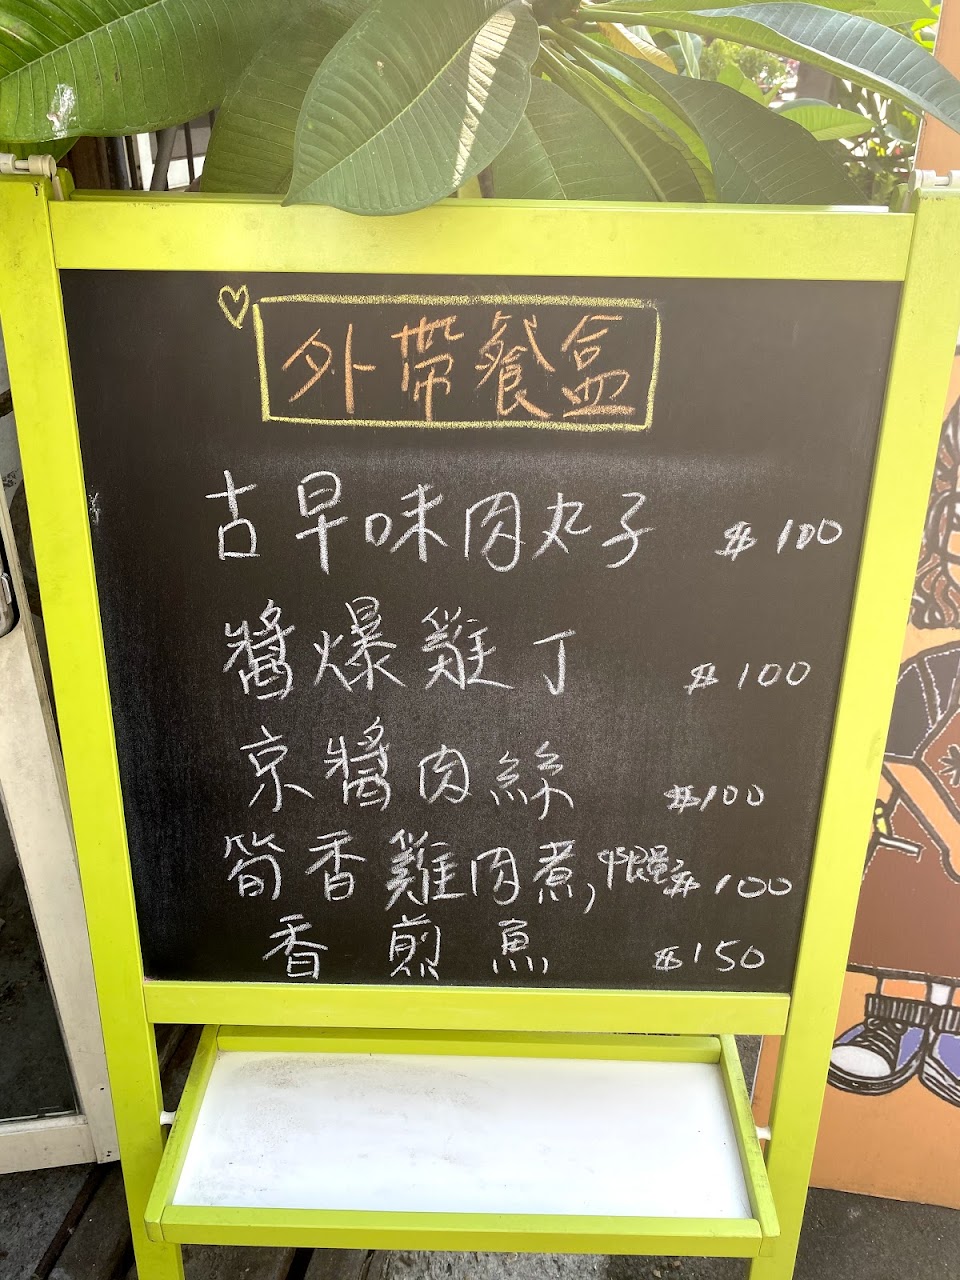 外帶餐盒
古早味肉丸子 $100
醬爆雞丁 $100
京醬肉絲 $100
筍香雞肉煮, 限量 $100
香煎魚 $150